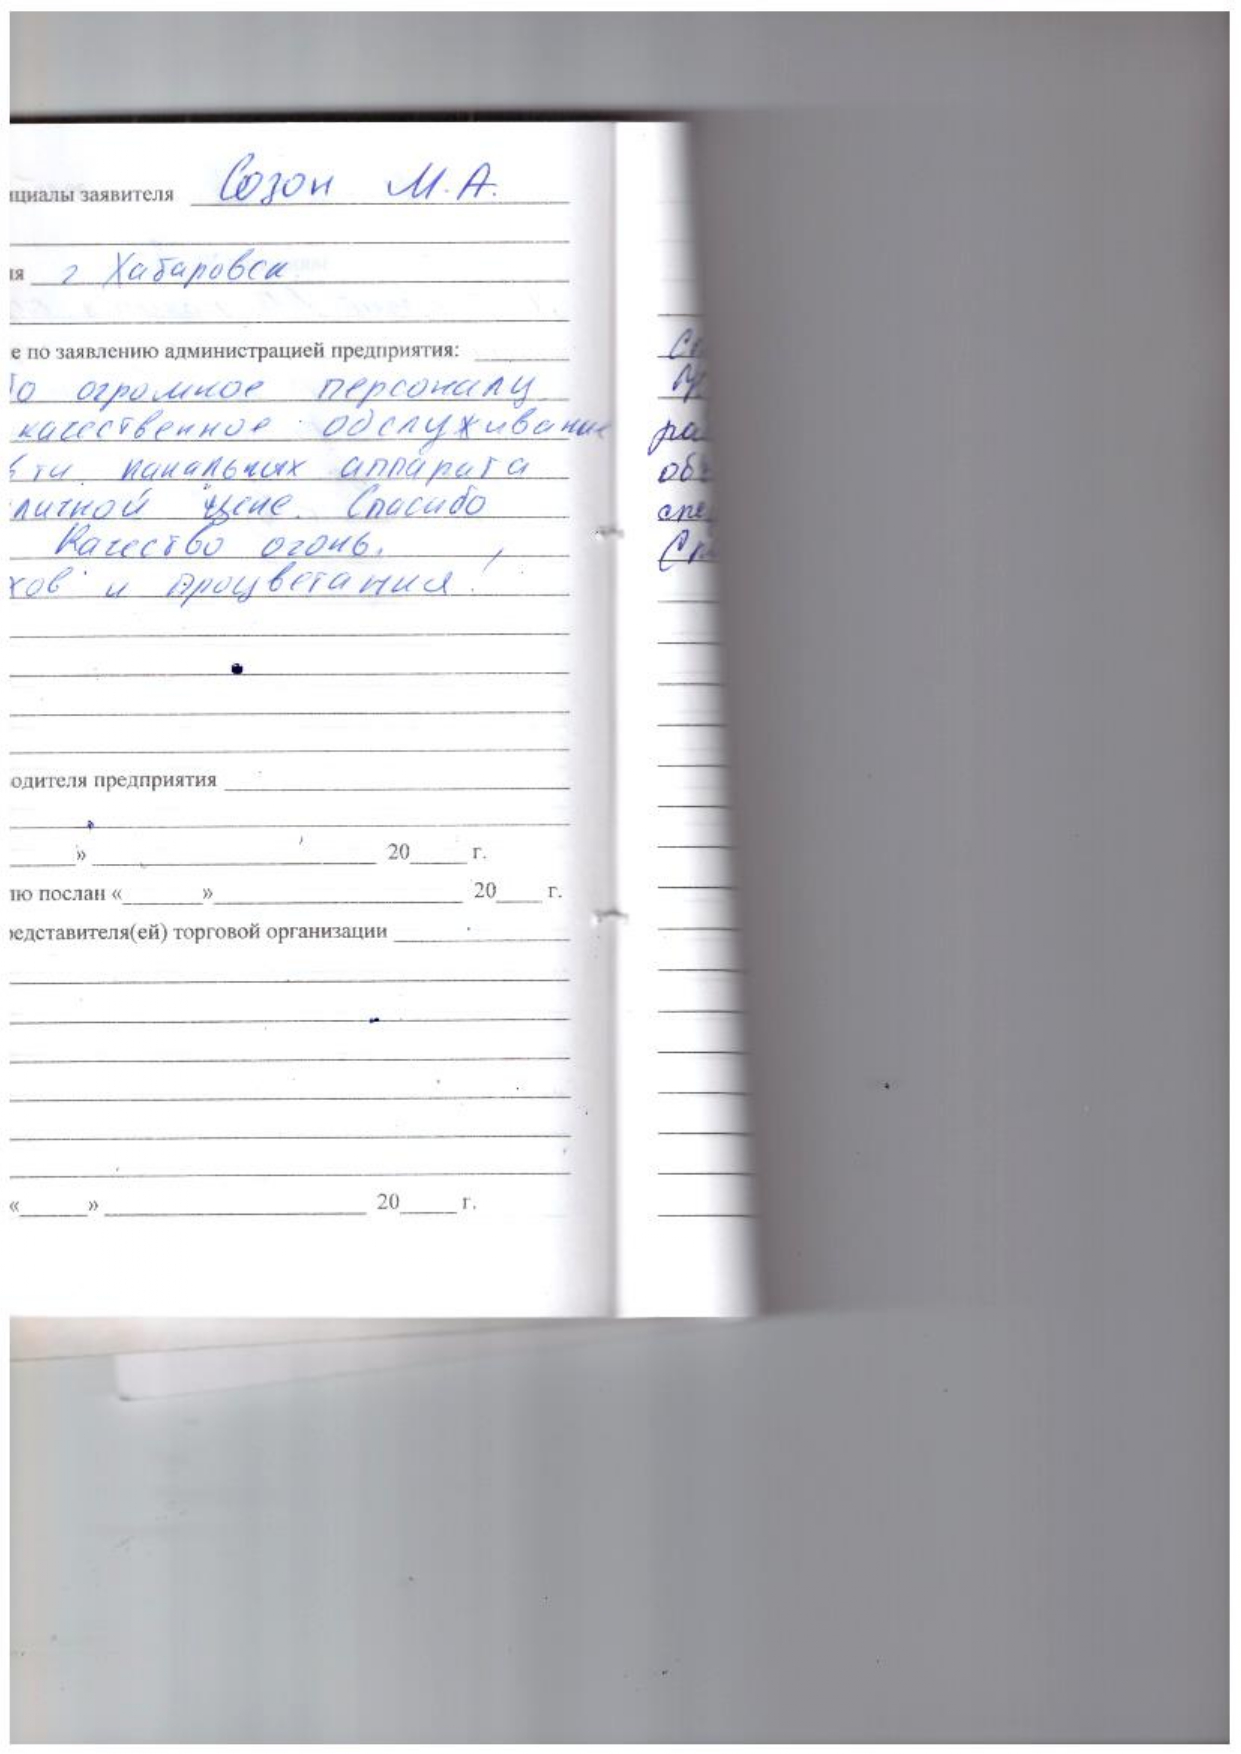 ициалы заявителя Созон М.А.
ия г Хабаровск
е по заявлению администрацией предприятия:
бо огромное персоналу
качественное обслуживание
вти канальных аппарата
личной цене. Спасибо
Качество огонь.
хов и процветания!
одителя предприятия
» 20 г.
ию послан « » 20 г.
редставителя(ей) торговой организации
« » 20 г.
Сп
ра
объ
спе
Сп